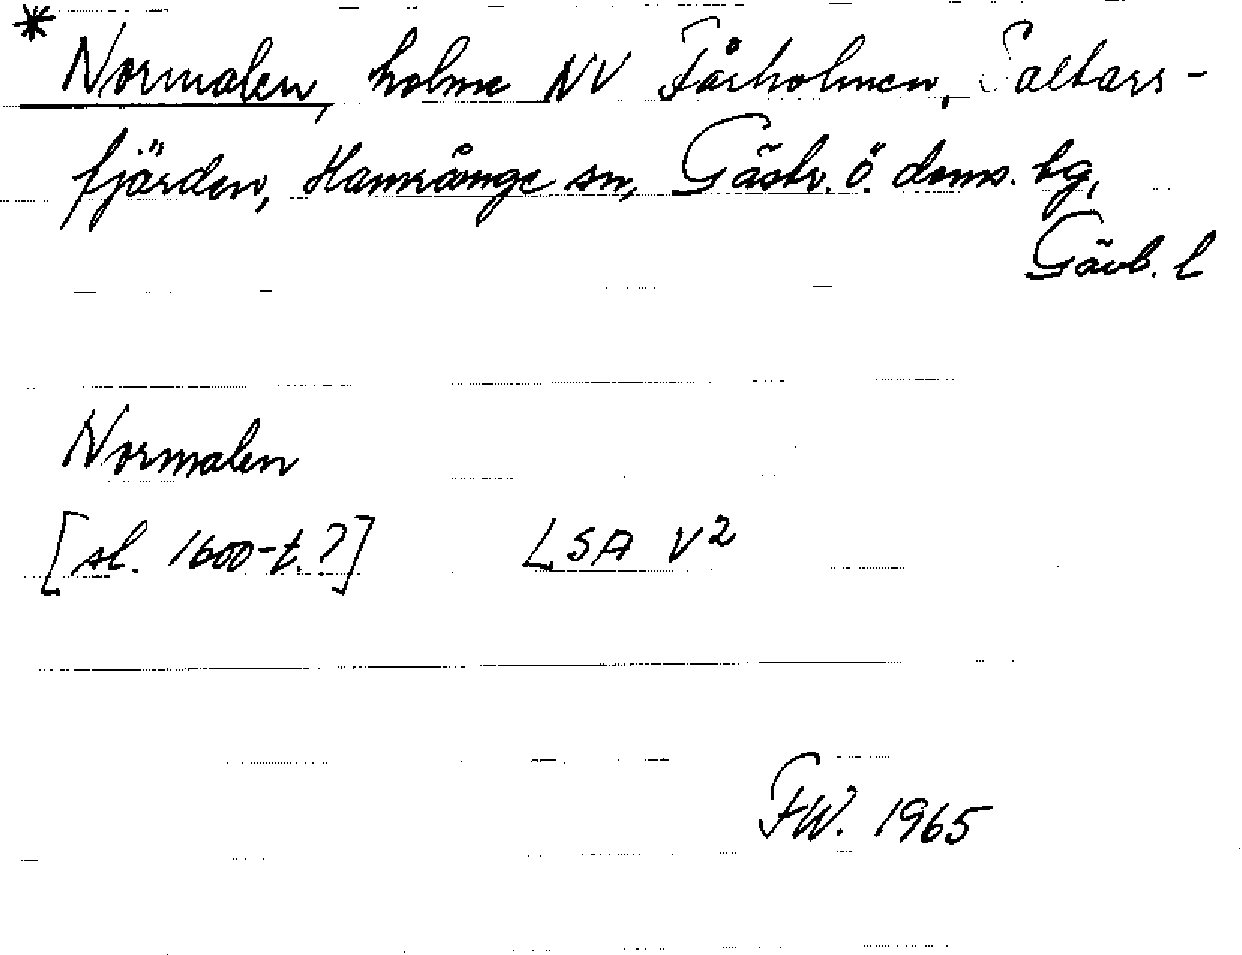 * Normalen, holme NV Fårholmen, Saltars-
fjärden, Hamrånge sn, Gästr. ö. doms. tg,
Gävb. l
Normalen
[sl. 1600-t.?] LSA V2
FW. 1965